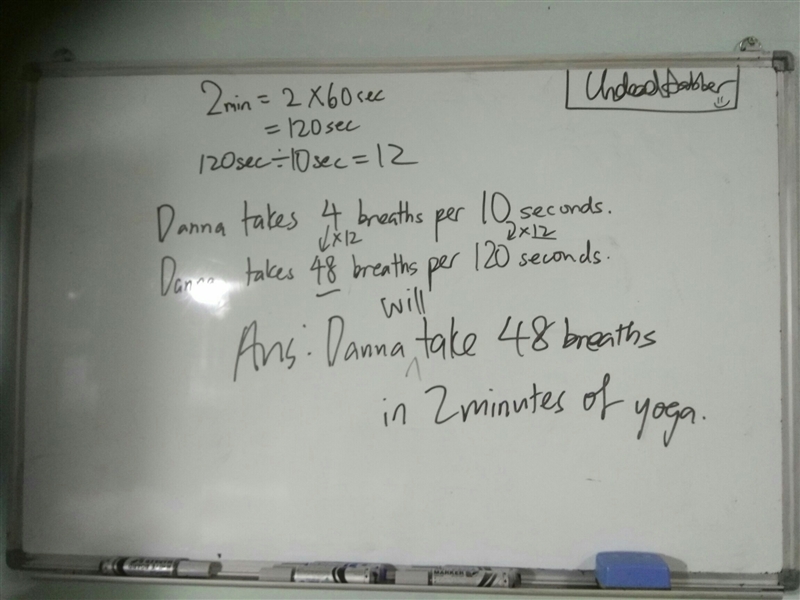 2min = 2 × 60sec
= 120sec
120sec ÷ 10sec = 12
Danna takes 4 breaths per 10 seconds.
↓×12
×12
takes 48 breaths per 120 seconds.
will
Ans: Danna ^ take 48 breaths
in 2 minutes of yoga.